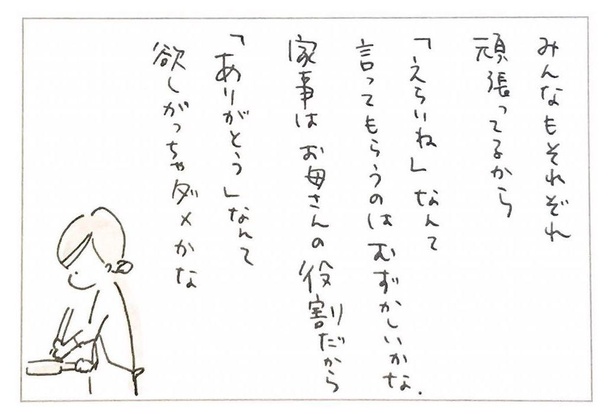 みんなもそれぞれ
頑張ってるから
「えらいね」なんて
言ってもらうのはむずかしいかな.
家事はお母さんの役割だから
「ありがとう」なんて
欲しがっちゃダメかな